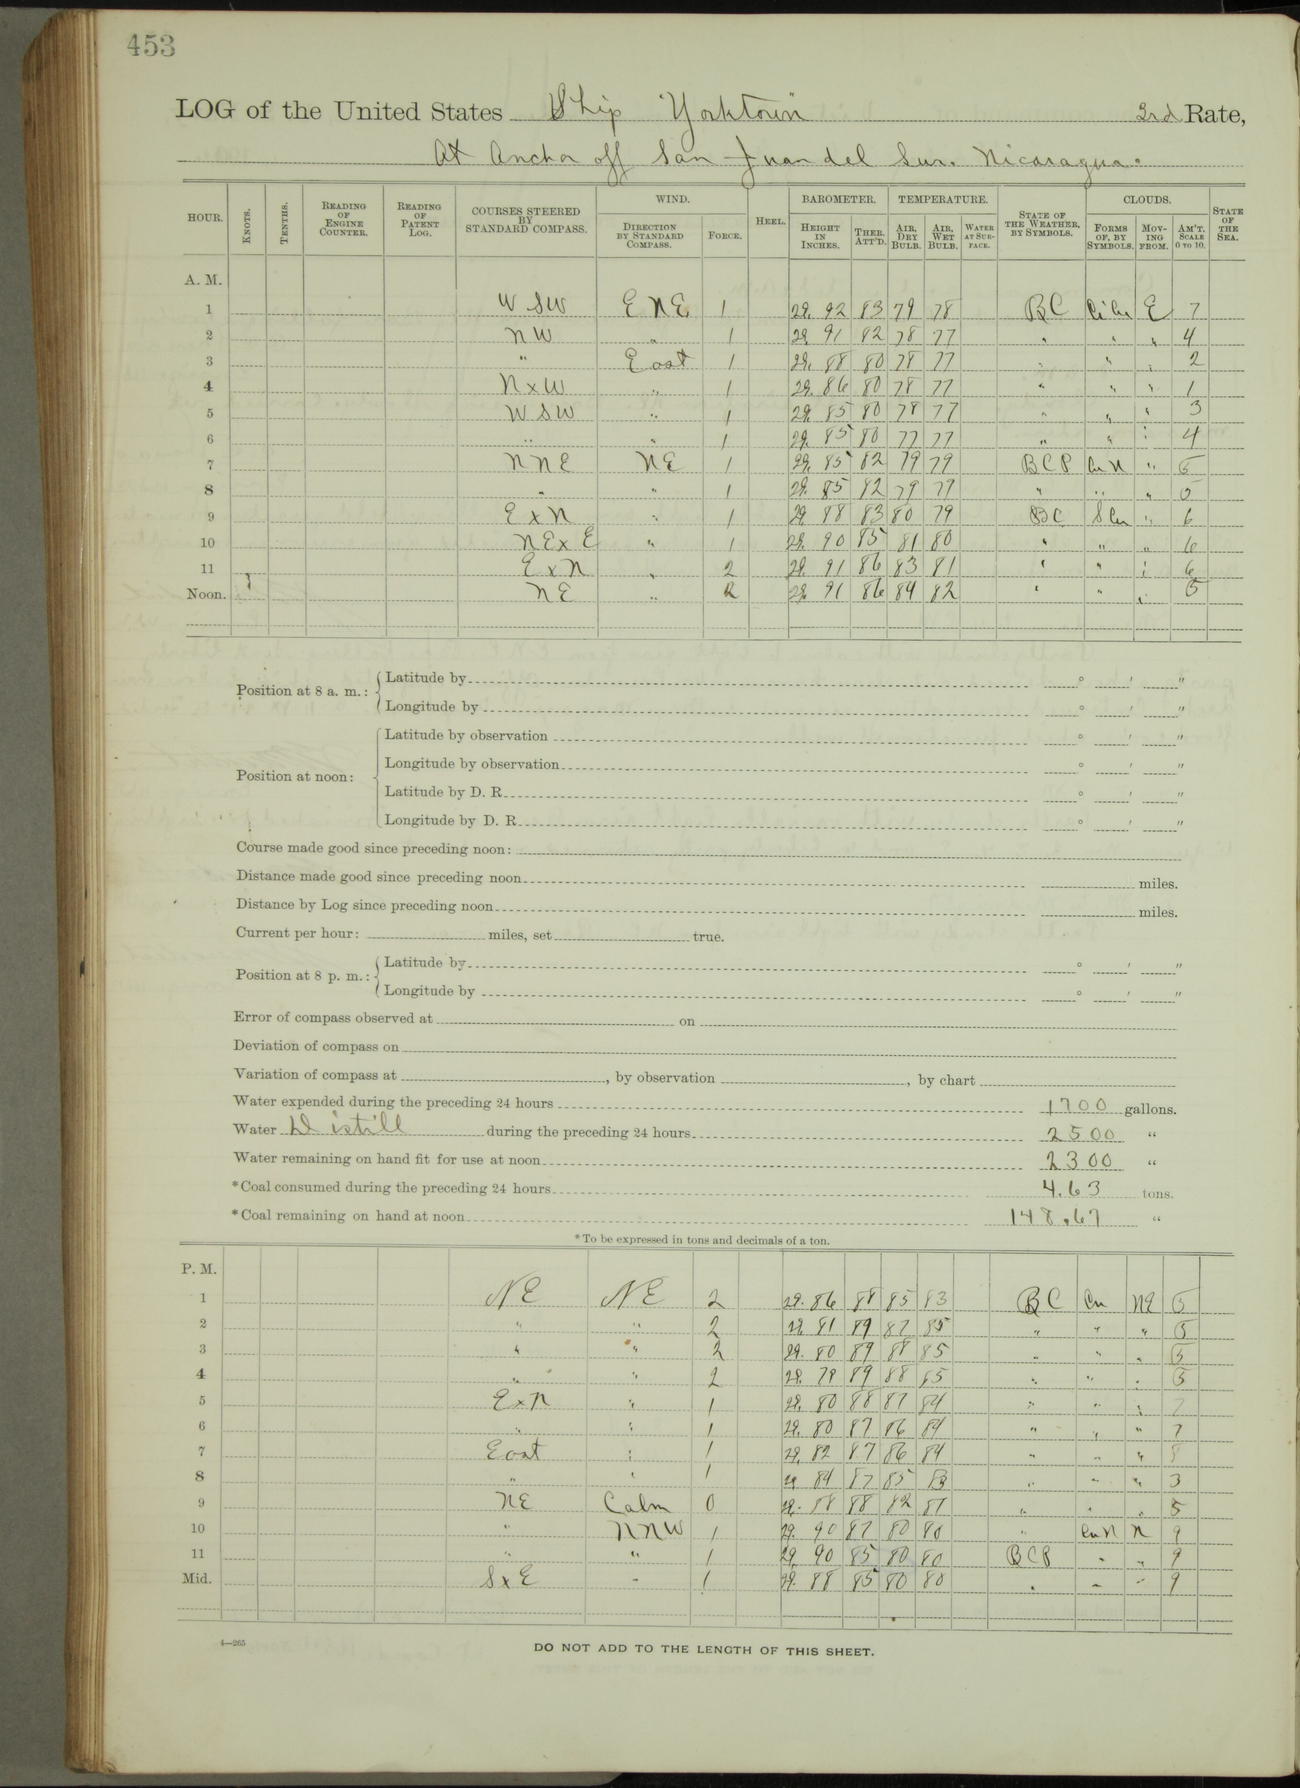 453
LOG of the United States Ship "Yorktown" 3rd Rate,
At Anchor off San Juan del Sur. Nicaragua.
HOUR. KNOTS. TENTHS. READING OF ENGINE COUNTER. READING OF PATENT LOG. COURSES STEERED BY STANDARD COMPASS. WIND. DIRECTION BY STANDARD COMPASS. FORCE. HEEL. BAROMETER. HEIGHT IN INCHES. THER. ATT'D. TEMPERATURE. AIR, DRY BULB. AIR, WET BULB. WATER AT SURFACE. STATE OF THE WEATHER, BY SYMBOLS. CLOUDS. FORMS OF, BY SYMBOLS. MOVING FROM. AM'T. SCALE 0 TO 10. STATE OF THE SEA.
A. M.
1 WSW ENE 1 29. 92 83 79 78 BC Ci Cu E 7
2 NW " 1 29. 91 82 78 77 " " " 4
3 " East 1 29. 88 80 78 77 " " " 2
4 NxW " 1 29. 86 80 78 77 " " " 1
5 WSW " 1 29. 85 80 78 77 " " " 3
6 " " 1 29. 85 80 77 77 " " " 4
7 NNE NE 1 29. 85 82 79 79 BCP Cu N " 5
8 " " 1 29. 85 82 79 77 " " " 5
9 ExN " 1 29 88 83 80 79 BC S Cu " 6
10 NExE " 1 29. 90 85 81 80 " " " 6
11 ExN " 2 29. 91 86 83 81 " " " 6
Noon. NE " 2 29. 91 86 84 82 " " " 5
Position at 8 a. m.: Latitude by ° ′ ″
Longitude by ° ′ ″
Position at noon: Latitude by observation ° ′ ″
Longitude by observation ° ′ ″
Latitude by D. R. ° ′ ″
Longitude by D. R. ° ′ ″
Course made good since preceding noon:
Distance made good since preceding noon miles.
Distance by Log since preceding noon miles.
Current per hour: miles, set true.
Position at 8 p. m.: Latitude by ° ′ ″
Longitude by ° ′ ″
Error of compass observed at on
Deviation of compass on
Variation of compass at , by observation , by chart
Water expended during the preceding 24 hours 1700 gallons.
Water Distill during the preceding 24 hours 2500 "
Water remaining on hand fit for use at noon 2300 "
*Coal consumed during the preceding 24 hours 4.63 tons.
*Coal remaining on hand at noon 148.67 "
*To be expressed in tons and decimals of a ton.
P. M.
1 NE NE 2 29. 86 88 85 83 BC Cu NE 5
2 " " 2 29. 81 89 87 85 " " " 5
3 " " 2 29. 80 89 88 85 " " " 5
4 " " 2 29. 78 89 88 85 " " " 5
5 ExN " 1 29. 80 88 87 84 " " " 7
6 " " 1 29. 80 87 86 84 " " " 7
7 East " 1 29. 82 87 86 84 " " " 8
8 " " 1 29 84 87 85 83 " " " 3
9 NE Calm 0 29. 88 88 82 81 " " " 5
10 " NNW 1 29. 90 87 80 80 " Cu N N 9
11 " " 1 29. 90 85 80 80 BCP " " 9
Mid. SxE " 1 29. 88 85 80 80 " " " 9
4—265
DO NOT ADD TO THE LENGTH OF THIS SHEET.